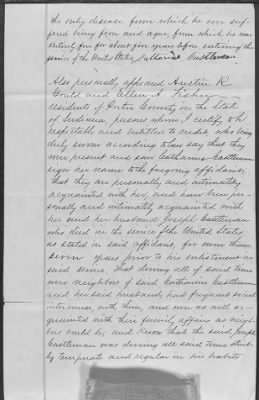 the only disease from which he ever suf-
fered being fever and ague, from which he was
entirely free for about four years before entering the
service of the United States. Catharine Castleman
Also personally appeared Austin R
Gould and Ellen A. Fisher
residents of County in the State
of Indiana, persons whom I certify to be
respectable and entitled to credit, who being
duly sworn according to law say that they
were present and saw Catharine Castleman
sign her name to the foregoing affidavit,
that they are personally and intimately
acquainted with her, and have been per-
sonally and intimately acquainted with
her and her husband Joseph Castleman
who died in the service of the United States
as stated in said affidavit, for more than
seven years prior to his enlistment in
said service, that during all of said time
were neighbors of said Catharine Castleman
and her said husband, had frequent social
intercourse with them, and were as well ac-
quainted with their family affairs as neigh-
bors could be, and know that the said Joseph
Castleman was during all said time strict-
ly temperate and regular in his habits